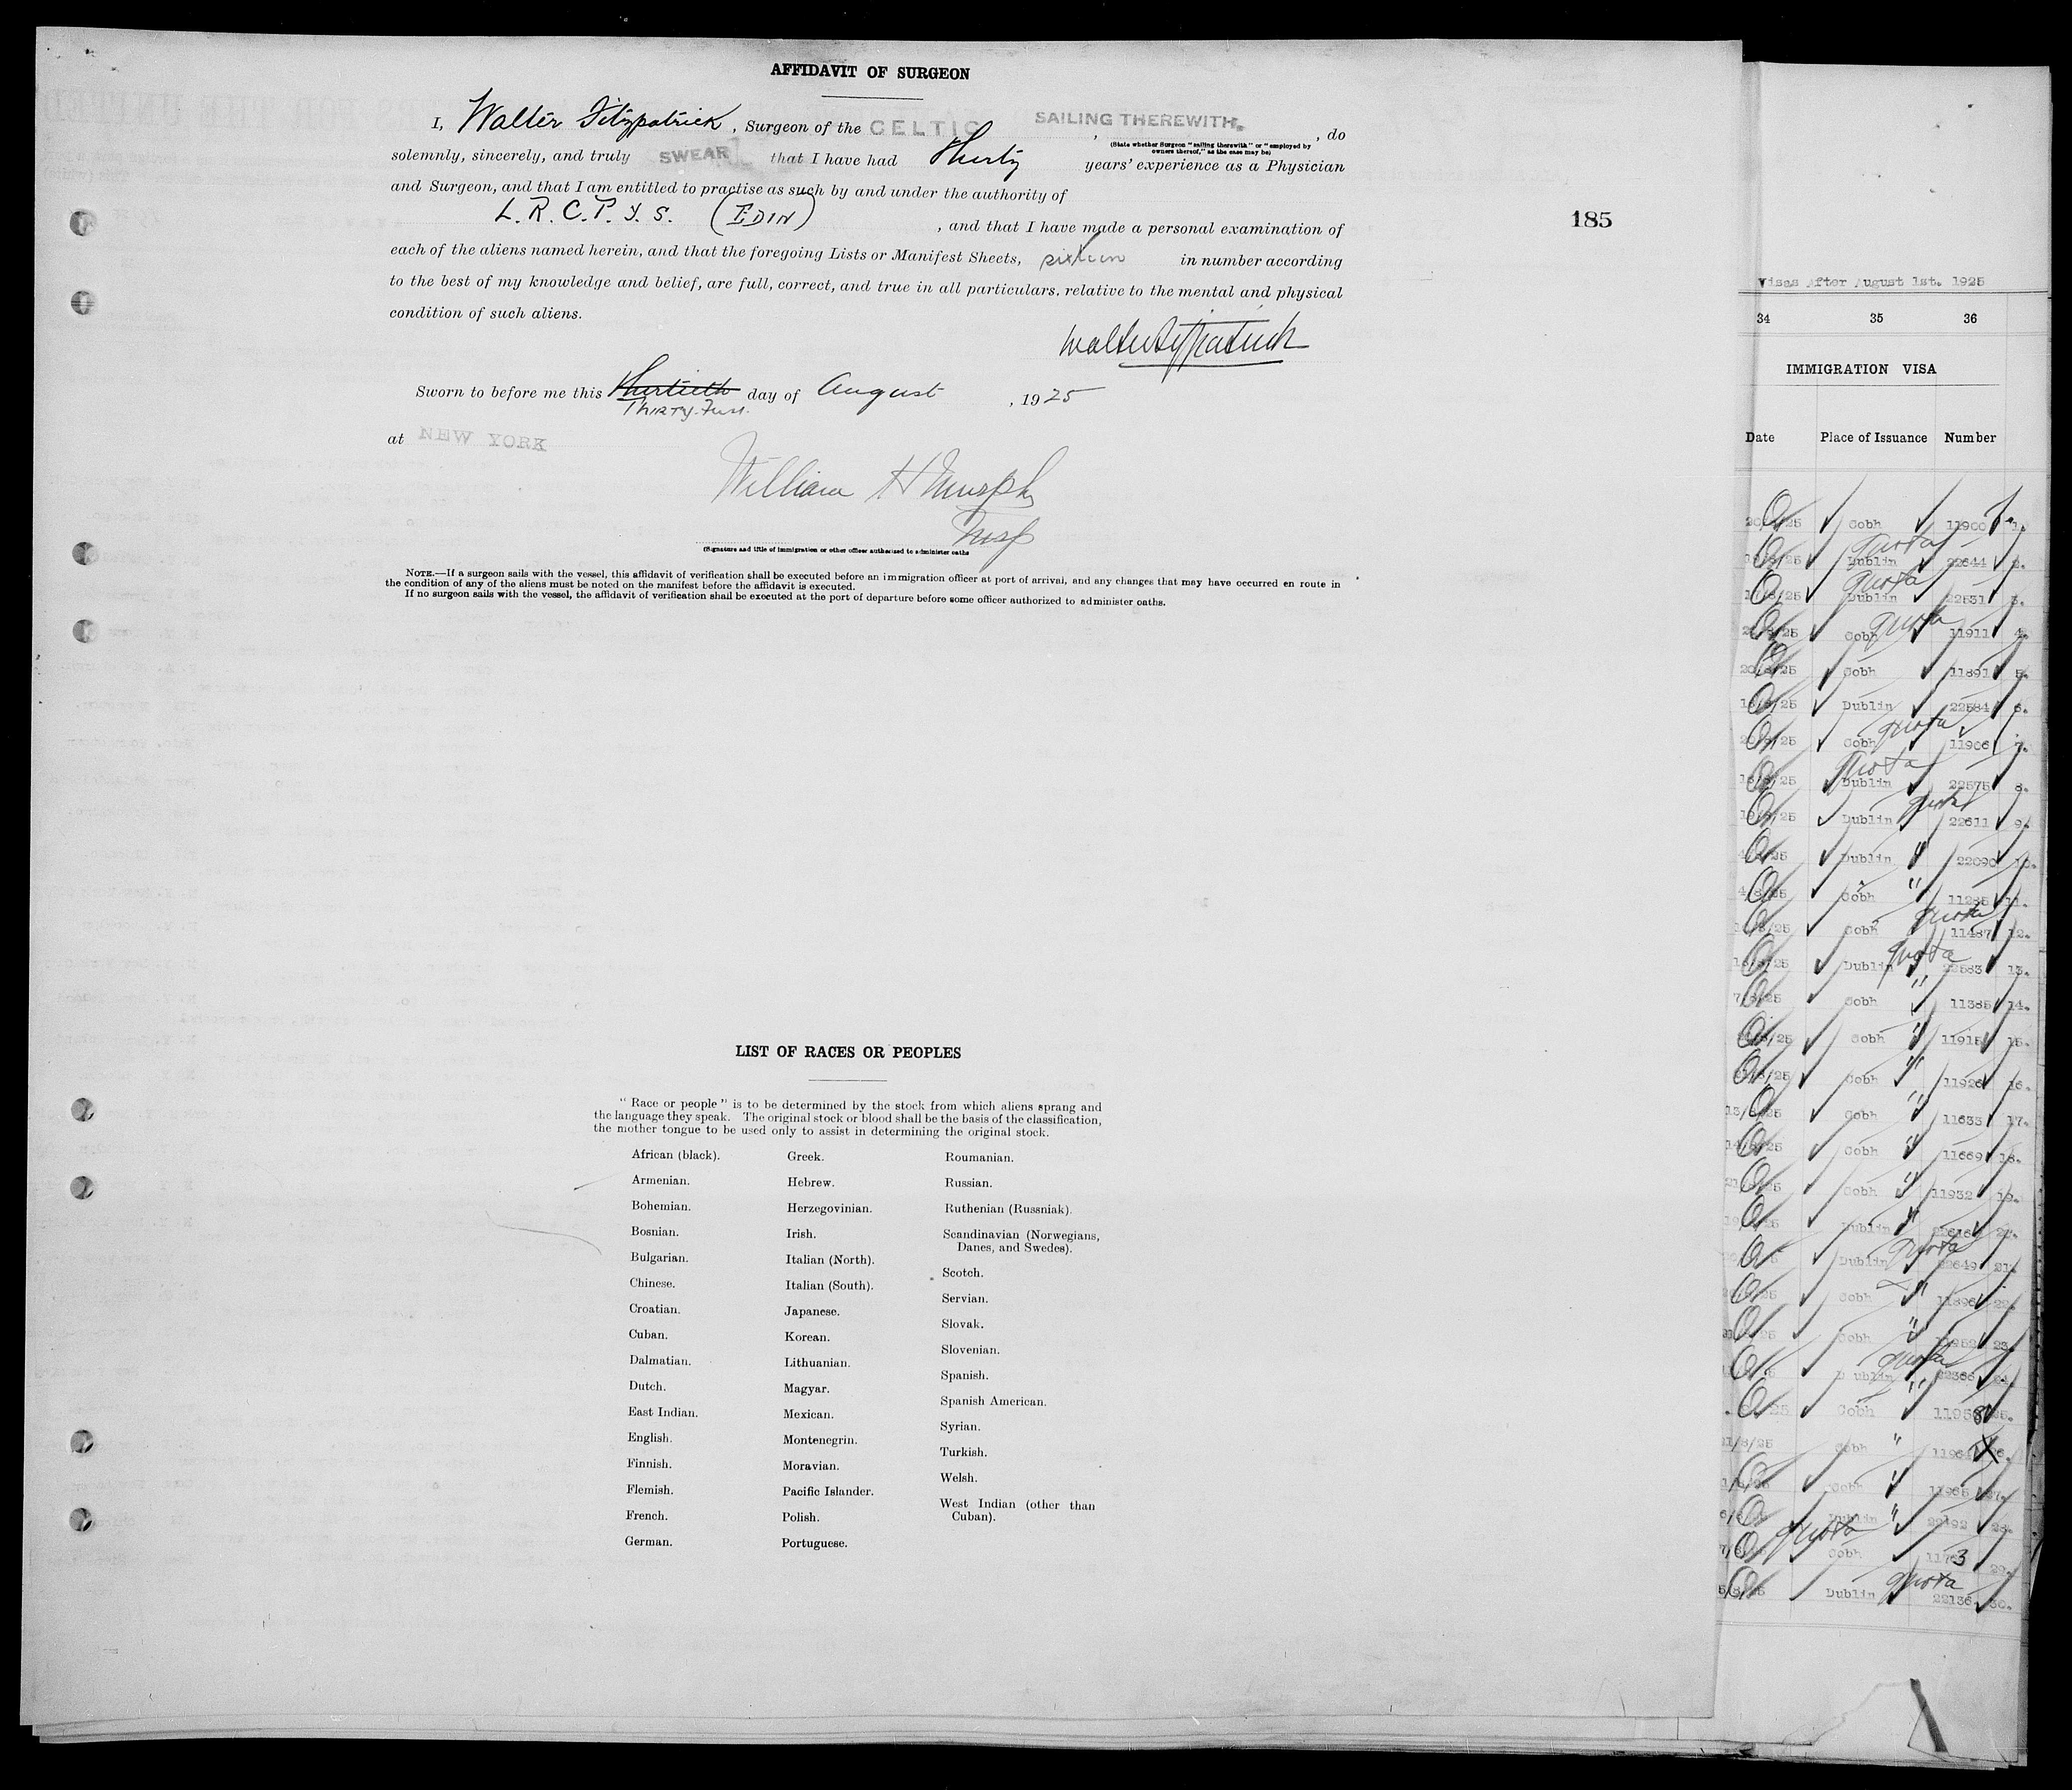 AFFIDAVIT OF SURGEON
I, Walter Fitzpatrick, Surgeon of the CELTIC SAILING THEREWITH. , do
(State whether Surgeon "sailing therewith" or "employed by
owners thereof," as the case may be)
solemnly, sincerely, and truly SWEAR that I have had Thirty years' experience as a Physician
and Surgeon, and that I am entitled to practise as such by and under the authority of
L. R. C. P. Y. S. (EDIN) , and that I have made a personal examination of
each of the aliens named herein, and that the foregoing Lists or Manifest Sheets, sixteen in number according
to the best of my knowledge and belief, are full, correct, and true in all particulars, relative to the mental and physical
condition of such aliens.
Walter Fitzpatrick
Sworn to before me this Thirtieth day of August , 1925
Thirty-First
at NEW YORK
William H Murphy
Insp
(Signature and title of immigration or other officer authorized to administer oaths
NOTE.—If a surgeon sails with the vessel, this affidavit of verification shall be executed before an immigration officer at port of arrival, and any changes that may have occurred en route in
the condition of any of the aliens must be noted on the manifest before the affidavit is executed.
If no surgeon sails with the vessel, the affidavit of verification shall be executed at the port of departure before some officer authorized to administer oaths.
185
LIST OF RACES OR PEOPLES
"Race or people" is to be determined by the stock from which aliens sprang and
the language they speak. The original stock or blood shall be the basis of the classification,
the mother tongue to be used only to assist in determining the original stock.
African (black).
Armenian.
Bohemian.
Bosnian.
Bulgarian.
Chinese.
Croatian.
Cuban.
Dalmatian.
Dutch.
East Indian.
English.
Finnish.
Flemish.
French.
German.
Greek.
Hebrew.
Herzegovinian.
Irish.
Italian (North).
Italian (South).
Japanese.
Korean.
Lithuanian.
Magyar.
Mexican.
Montenegrin.
Moravian.
Pacific Islander.
Polish.
Portuguese.
Roumanian.
Russian.
Ruthenian (Russniak).
Scandinavian (Norwegians,
Danes, and Swedes).
Scotch.
Servian.
Slovak.
Slovenian.
Spanish.
Spanish American.
Syrian.
Turkish.
Welsh.
West Indian (other than
Cuban).
Visas After August 1st. 1925
34 35 36
IMMIGRATION VISA
Date Place of Issuance Number
Cobh 11900 1.
quota
Dublin 22644 2.
quota
Dublin 22531 3.
quota
Cobh 11911 4.
Cobh 11891 5.
Dublin 22584 6.
quota
Cobh 11906 7.
quota
Dublin 22575 8.
quota
Dublin 22611 9.
Dublin " 22090 10.
Cobh " 11285 11.
quota
Cobh 11487 12.
quota
Dublin 22583 13.
Cobh " 11385 14.
Cobh " 11915 15.
Cobh " 11926 16.
Cobh " 11633 17.
Cobh " 11669 18.
Cobh " 11932 19.
Dublin "
quota
Dublin 22649 21.
Cobh " 11896 22.
Cobh " 23.
quota
Dublin 22366 24.
Cobh " 11958 25.
21/8/25 Cobh " 11964
Cobh " 11965 27.
Dublin " 28.
quota
Cobh 29.
quota
Dublin 22136 30.